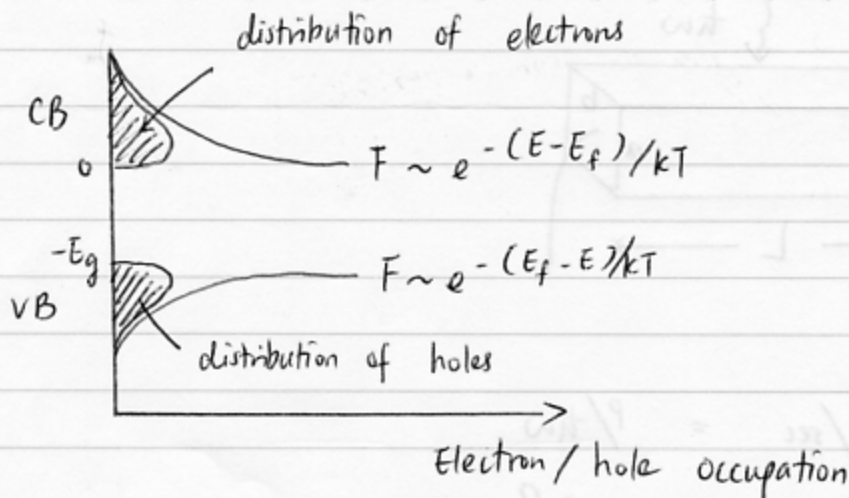 distribution of electrons
CB
0
F ~ e^-(E-E_f)/kT
-E_g
F ~ e^-(E_f-E)/kT
VB
distribution of holes
Electron / hole occupation